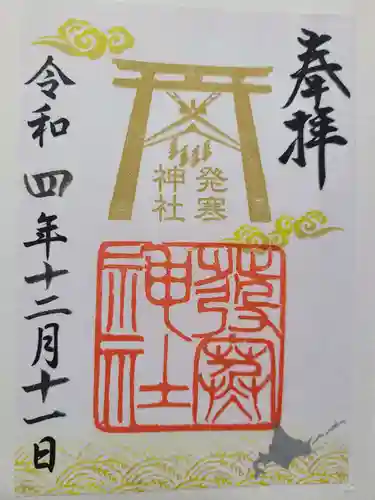 奉拝
発寒
神社
發寒
神社
令和四年十二月十一日